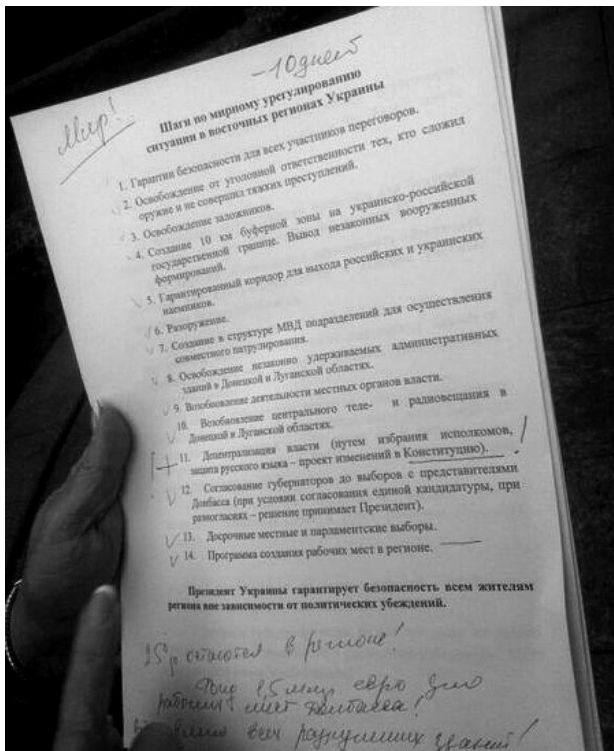 -10 дней
Мир!
Шаги по мирному урегулированию
ситуации в восточных регионах Украины
1. Гарантии безопасности для всех участников переговоров.
2. Освобождение от уголовной ответственности тех, кто сложил
оружие и не совершил тяжких преступлений.
3. Освобождение заложников.
4. Создание 10 км буферной зоны на украинско-российской
государственной границе. Вывод незаконных вооруженных
формирований.
5. Гарантированный коридор для выхода российских и украинских
наемников.
6. Разоружение.
7. Создание в структуре МВД подразделений для осуществления
совместного патрулирования.
8. Освобождение незаконно удерживаемых административных
зданий в Донецкой и Луганской областях.
9. Возобновление деятельности местных органов власти.
10. Возобновление центрального теле- и радиовещания в
Донецкой и Луганской областях.
11. Децентрализация власти (путем избрания исполкомов,
защита русского языка – проект изменений в Конституцию).
12. Согласование губернаторов до выборов с представителями
Донбасса (при условии согласования единой кандидатуры, при
разногласиях – решение принимает Президент).
13. Досрочные местные и парламентские выборы.
14. Программа создания рабочих мест в регионе.
Президент Украины гарантирует безопасность всем жителям
региона вне зависимости от политических убеждений.
остаются в регионе!
1,5 млн евро для
рабочих мест Донбасса!
всех разрушенных зданий!